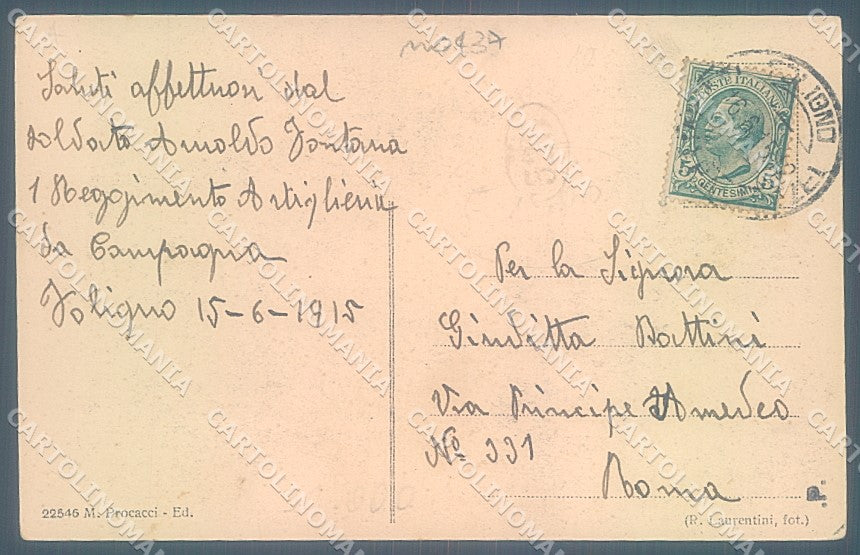 no437
Saluti affettuosi dal
soldato Arnoldo Fontana
1 Reggimento Artiglieria
da Campagna
Foligno 15-6-1915
POSTE ITALIANE
CENTESIMI 5
Per la Signora
Giuditta Battini
Via Principe Amedeo
No 331
Roma
22546 M. Procacci - Ed.
(R. Laurentini, fot.)
.P.
CARTOLINOMANIA